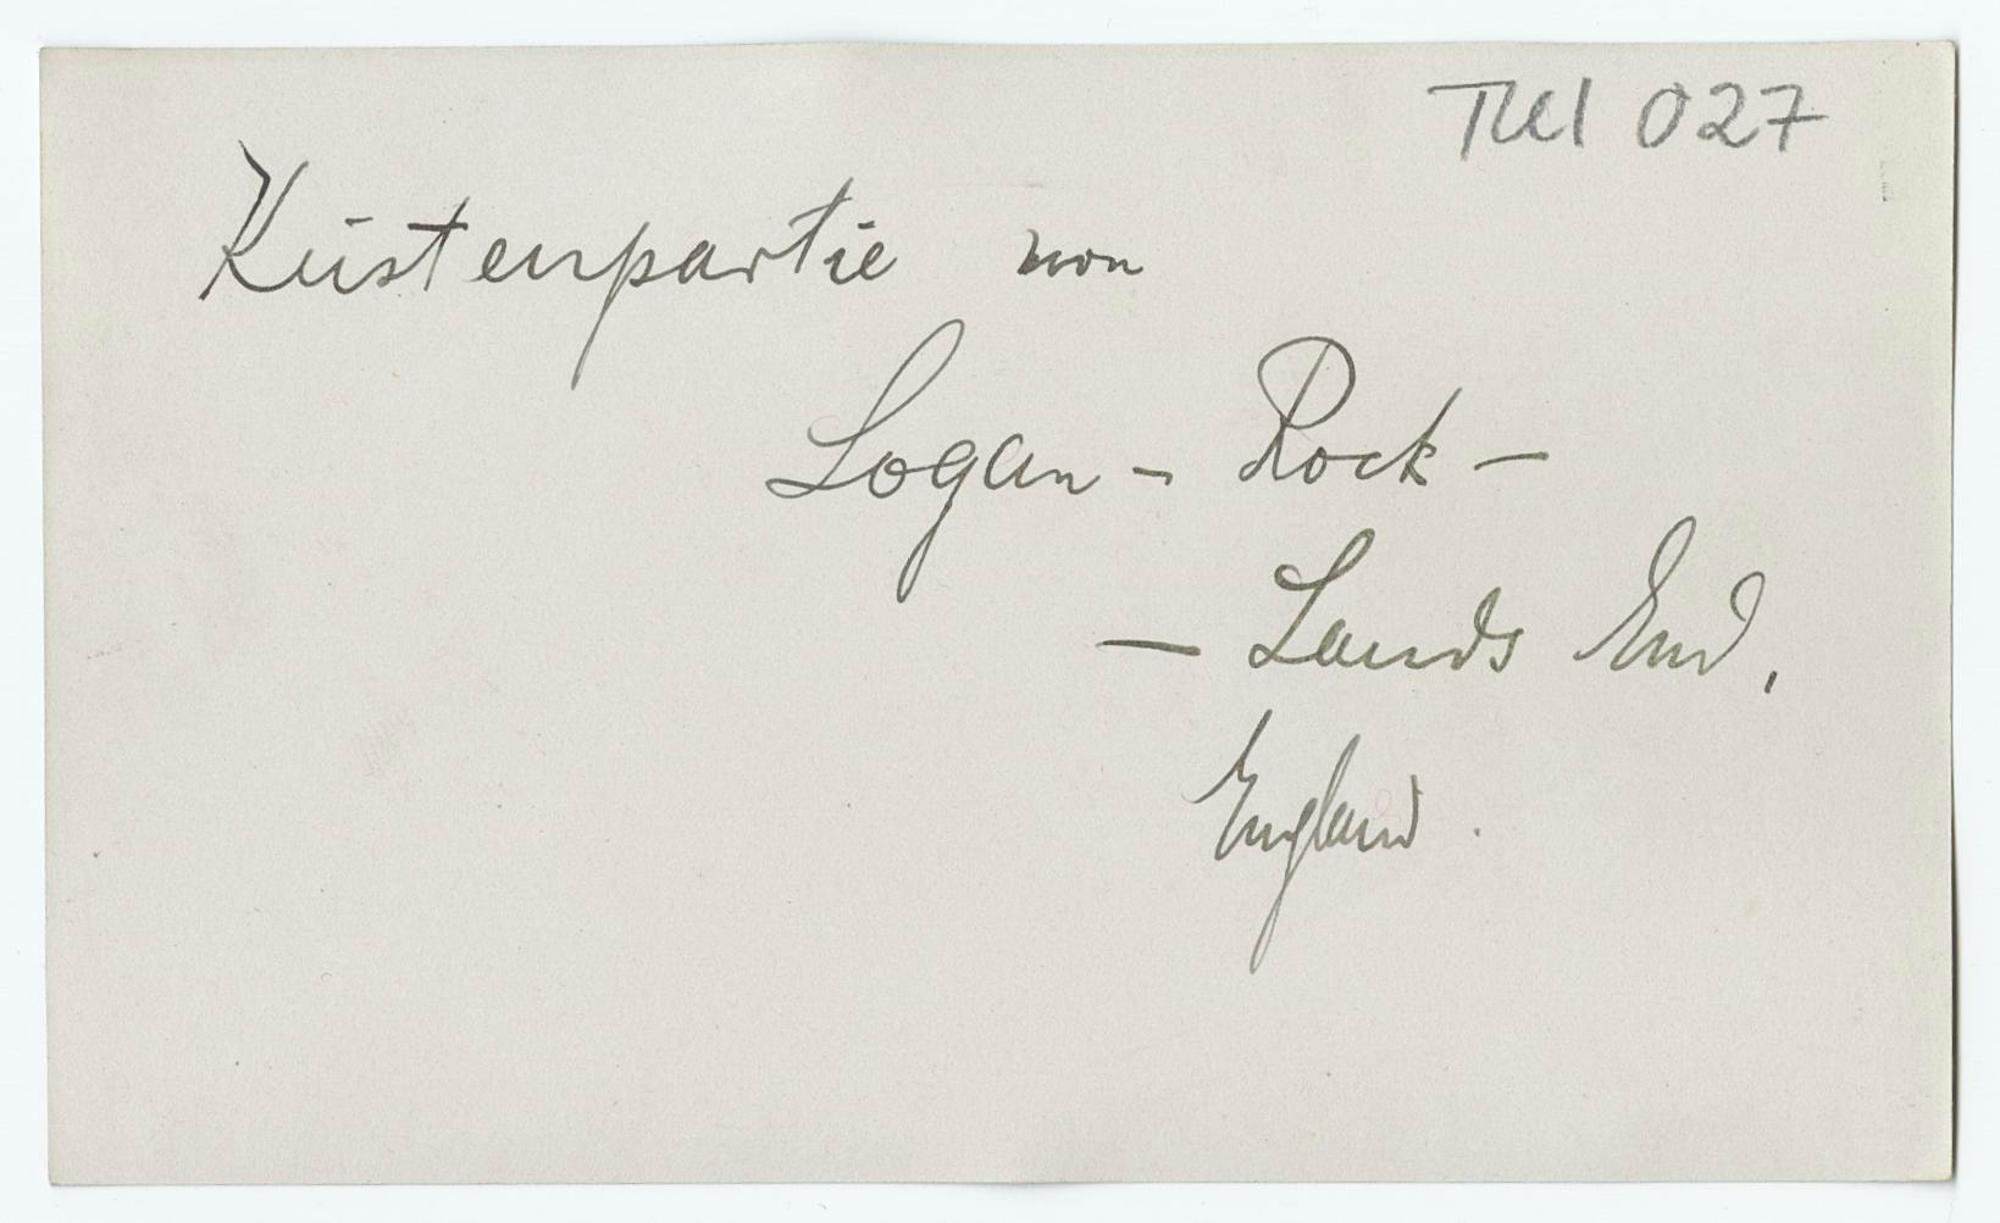 TUl 027
Küstenpartie von
Logan - Rock -
- Lands End,
England.